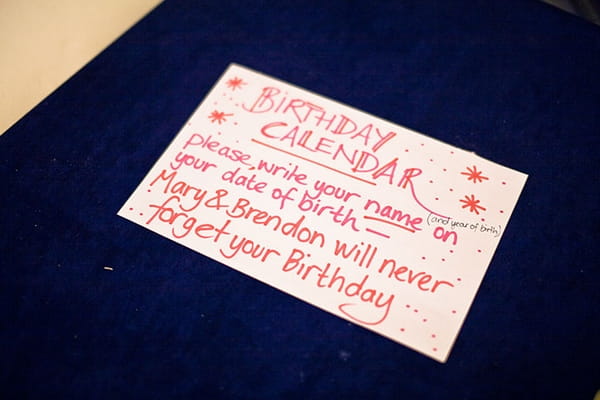 BIRTHDAY
CALENDAR
please, write your name (and year of birth) on
your date of birth —
Mary & Brendon will never
forget your Birthday